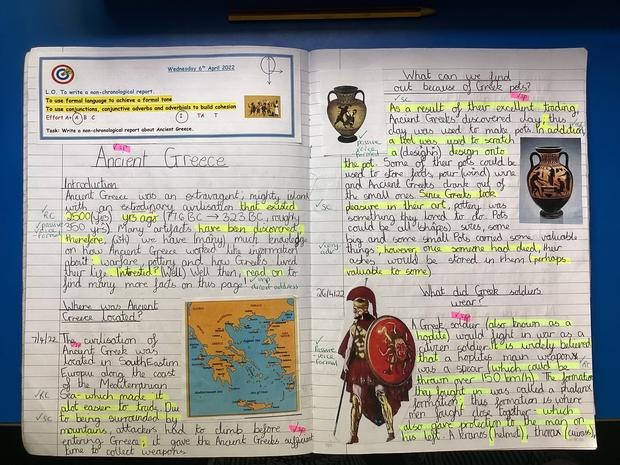 Wednesday 6th April 2022
L.O. To write a non-chronological report.
To use formal language to achieve a formal tone
To use conjunctions, conjunctive adverbs and adverbials to build cohesion
Effort A+ A B C I TA T
Task: Write a non-chronological report about Ancient Greece.
Ancient Greece
Introduction
Ancient Greece was an extravagent, mighty, island
with a extrodinary civilisation that existed
2500 (yes) yrs ago (776 BC → 323 BC, roughly
350 yrs). Many artifacts have been discovered,
therefore, (with) we have (many) much knowledge
on how Ancient Greece worked like information
about: warfare, pottery and how Greeks lived
their lives. Interested? (Well) Well then, read on to
find many more facts on this page!
direct address
Where was Ancient
Greece Located?
7/4/22
The civilisation of
Ancient Greek was
located in SouthEastern
Europe along the coast
of the Mediterranian
Sea - which made it
alot easier to trade. Due
to being surrounded by
mountains, attackers had to climb before
entering Greece; it gave the Ancient Greeks sufficient
time to collect weapons.
What can we find
out because of Greek pots?
As a result of their excellent trading,
Ancient Greeks discovered clay; this
clay was used to make pots. In addition,
a tool was used to scratch
a (desighn) design onto
the pot. Some of their pots could be
used to store foods, pour (wind) wine
and Ancient Greeks drank out of
the small ones. Since Greeks took
pleasure in their art, pottery was
something they loved to do. Pots
could be all (shapes) sizes, some
big and some small. Pots carried some valuable
things; however, once someone had died, their
ashes would be stored in them (perhaps
valuable to some)
26/4/22
What did Greek soldiers
wear?
A Greek soldier (also known as a
hoplite) would fight in war as a
citizen soldier. It is widely believed
that a hoplites main weapons
was a spear (which could be
thrown over 150 km/h). The formation
they fought in was called a phalanx
formation; this formation is where
men fought close together - which
also gave protection to the man on
his left. A kranos (helmet), thorax (cuirass),